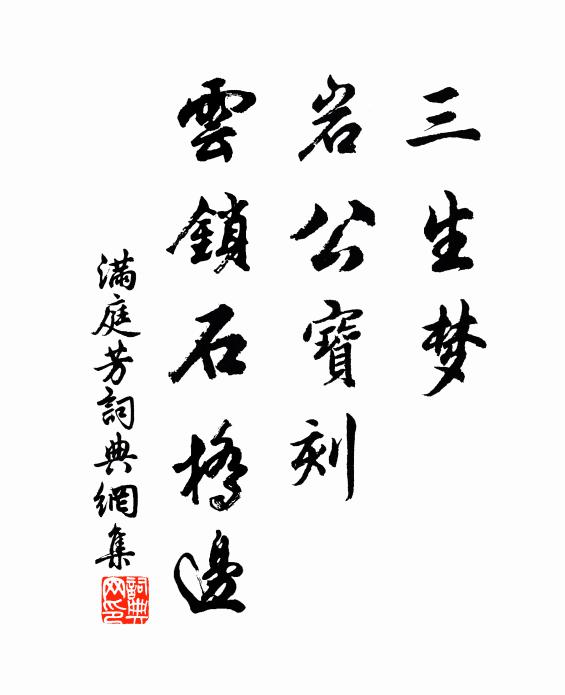 三生梦
岩公寶刻
雲鎖石橋邊
滿庭芳詞典網集
詞典网印